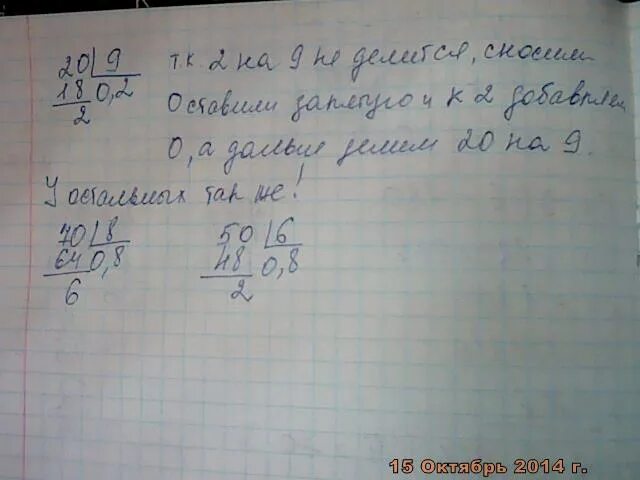 20 9 т.к. 2 на 9 не делится, сносим
18 0,2 0 ставим запятую и к 2 добавляем
2 0, а дальше делим 20 на 9.
У остальных так же!
70 8 50 6
64 0,8 48 0,8
6 2
15 Октябрь 2014 г.